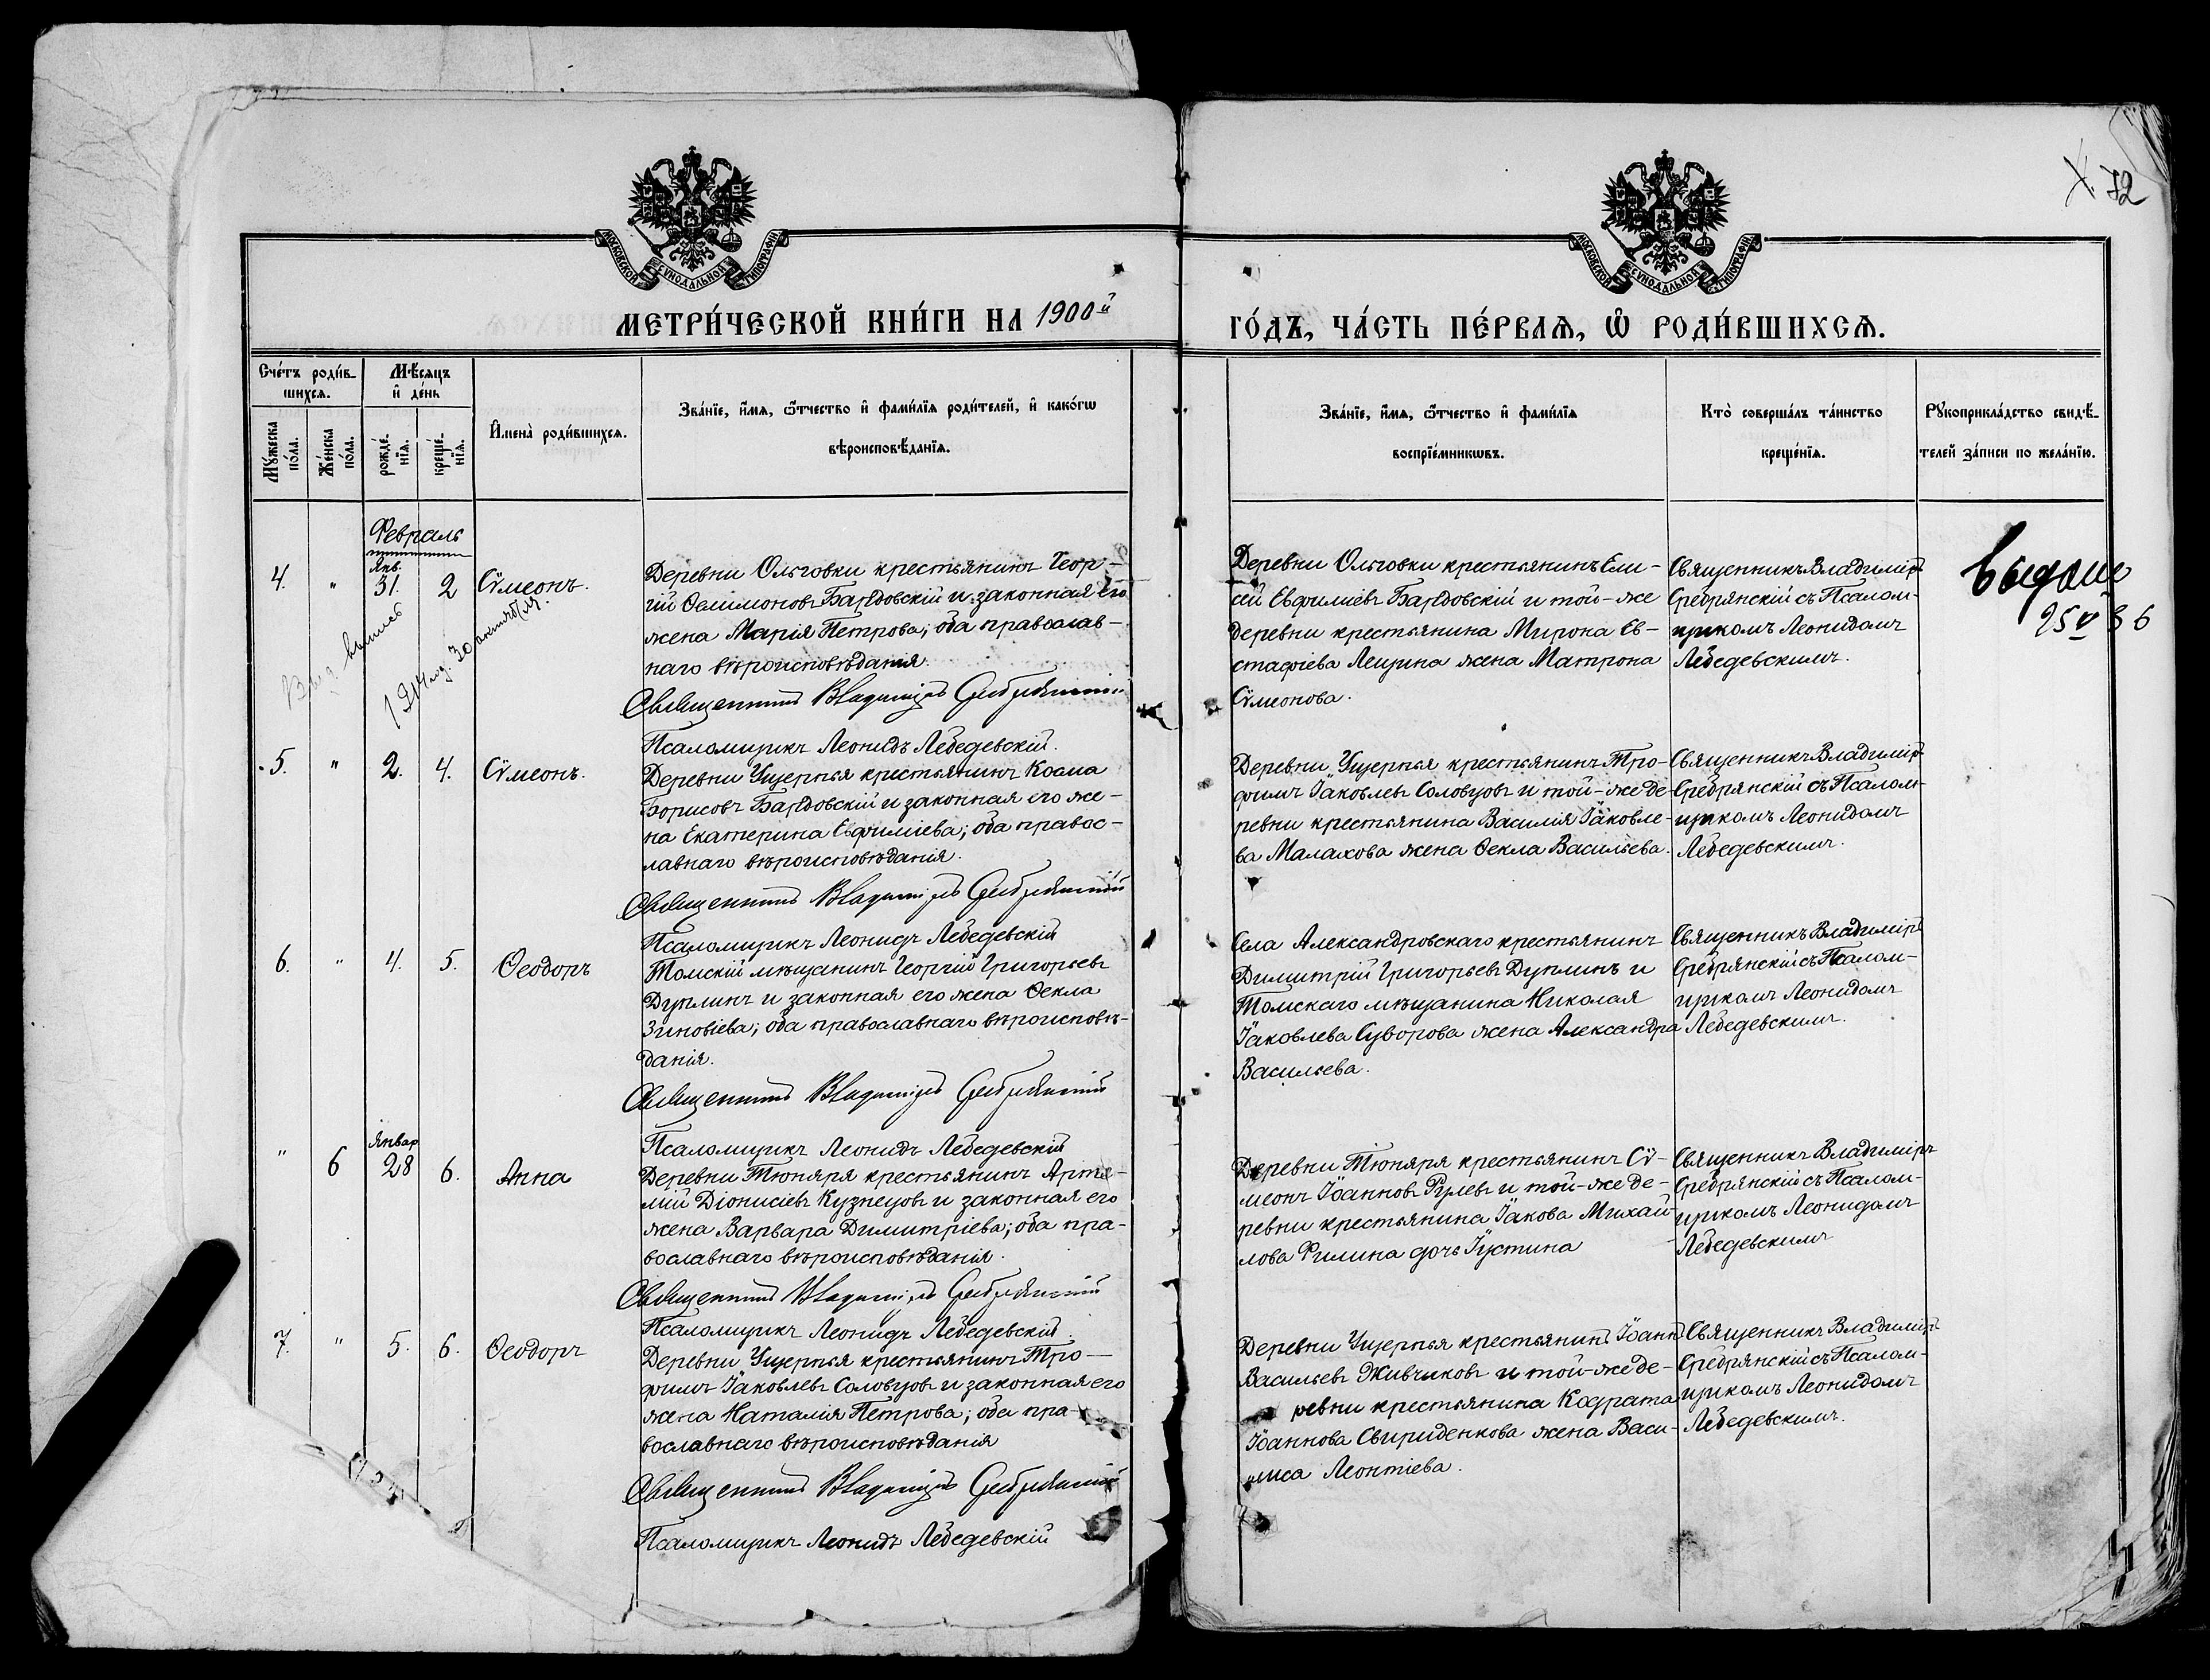 Х. 72
МОСКОВСКОЙ СѴНОДАЛЬНОЙ ТИПОГРАФІИ
МОСКОВСКОЙ СѴНОДАЛЬНОЙ ТИПОГРАФІИ
МЕТРИ́ЧЕСКОЙ КНИ́ГИ НА 1900й
ГО́ДЪ, ЧА́СТЬ ПЕ́РВАѦ, Ѽ РОДИ́ВШИХСѦ.
Сче́тъ роди́в-
шихсѧ.
Мꙋ́жеска по́ла.
Же́нска по́ла.
Мѣ́сѧцъ
и҆ де́нь
рожде́-
нїѧ.
креще́-
нїѧ.
И҆мена̀ роди́вшихсѧ.
Зва́нїе, и҆́мѧ, ѻ҆́тчество и҆ фами́лїѧ роди́телей, и҆ како́гѡ
вѣроисповѣ́данїѧ.
Зва́нїе, и҆́мѧ, ѻ҆́тчество и҆ фами́лїѧ
воспрїе́мникѡвъ.
Кто̀ соверша́лъ та́инство
креще́нїѧ.
Рꙋкоприкла́дство свидѣ́-
телей за́писи по жела́нїю.
Февраль
4. " Янв. 31. 2 Сѵмеонъ.
Деревни Ольговки крестьянинъ Геор-
гій Филимоновъ Бардовскій и законная его
жена Марія Петрова; оба православ-
наго вѣроисповѣданія.
Священникъ Владиміръ Сребрянскій
Псаломщикъ Леонидъ Лебедевскій.
Деревни Ольговки крестьянинъ Ели-
сей Евфиміевъ Бардовскій и той-же
деревни крестьянина Мирона Ев-
стафіева Лещина жена Матрона
Сѵмеонова.
Священникъ Владиміръ
Сребрянскій съ Псалом-
щикомъ Леонидомъ
Лебедевскимъ.
Выдано
25 V 36
5. " 2. 4. Сѵмеонъ.
Деревни Ущерпья крестьянинъ Косма
Борисовъ Бардовскій и законная его же-
на Екатерина Евфиміева; оба правос-
лавнаго вѣроисповѣданія.
Священникъ Владиміръ Сребрянскій
Псаломщикъ Леонидъ Лебедевскій
Деревни Ущерпья крестьянинъ Тро-
фимъ Іаковлевъ Соловцовъ и той-же де-
ревни крестьянина Василія Іаковле-
ва Малахова жена Ѳекла Васильева.
Священникъ Владиміръ
Сребрянскій съ Псалом-
щикомъ Леонидомъ
Лебедевскимъ.
6. " 4. 5. Ѳеодоръ
Томскій мѣщанинъ Георгій Григорьевъ
Дуплинъ и законная его жена Ѳекла
Зиновіева; оба православнаго вѣроисповѣ-
данія.
Священникъ Владиміръ Сребрянскій
Псаломщикъ Леонидъ Лебедевскій
Села Александровскаго крестьянинъ
Димитрій Григорьевъ Дуплинъ и
Томскаго мѣщанина Николая
Іаковлева Суворова жена Александра
Васильева.
Священникъ Владиміръ
Сребрянскій съ Псалом-
щикомъ Леонидомъ
Лебедевскимъ.
" 6 Январ 28 6. Анна
Деревни Тюняря крестьянинъ Арте-
мій Діонисіевъ Кузнецовъ и законная его
жена Варвара Димитріева; оба пра-
вославнаго вѣроисповѣданія.
Священникъ Владиміръ Сребрянскій
Псаломщикъ Леонидъ Лебедевскій.
Деревни Тюняря крестьянинъ Сѵ-
меонъ Іоанновъ Рулевъ и той-же де-
ревни крестьянина Іакова Михай-
лова Филина дочь Іустина
Священникъ Владиміръ
Сребрянскій съ Псалом-
щикомъ Леонидомъ
Лебедевскимъ
7. " 5. 6. Ѳеодоръ
Деревни Ущерпья крестьянинъ Тро-
фимъ Іаковлевъ Соловцовъ и законная его
жена Наталія Петрова; оба пра-
вославнаго вѣроисповѣданія
Священникъ Владиміръ Сребрянскій
Псаломщикъ Леонидъ Лебедевскій
Деревни Ущерпья крестьянинъ Іоаннъ
Васильевъ Живчиковъ и той-же де-
ревни крестьянина Кодрата
Іоаннова Свириденкова жена Васи-
лиса Леонтіева.
Священникъ Владиміръ
Сребрянскій съ Псалом-
щикомъ Леонидомъ
Лебедевскимъ.